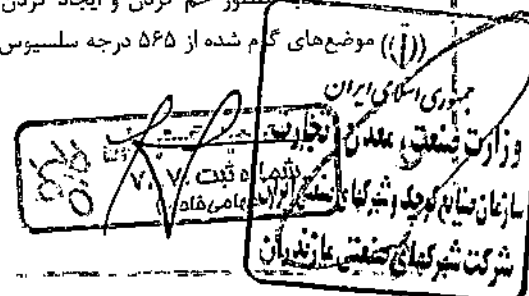 منظور خم کردن و ایجاد کردن
موضع‌های گرم شده از ۵۶۵ درجه سلسیوس
جمهوری اسلامی ایران
وزارت صنعت، معدن و تجارت
سازمان صنایع کوچک و شهرکهای صنعتی ایران
شرکت شهرکهای صنعتی مازندران
شماره ثبت ۷۰۷۰